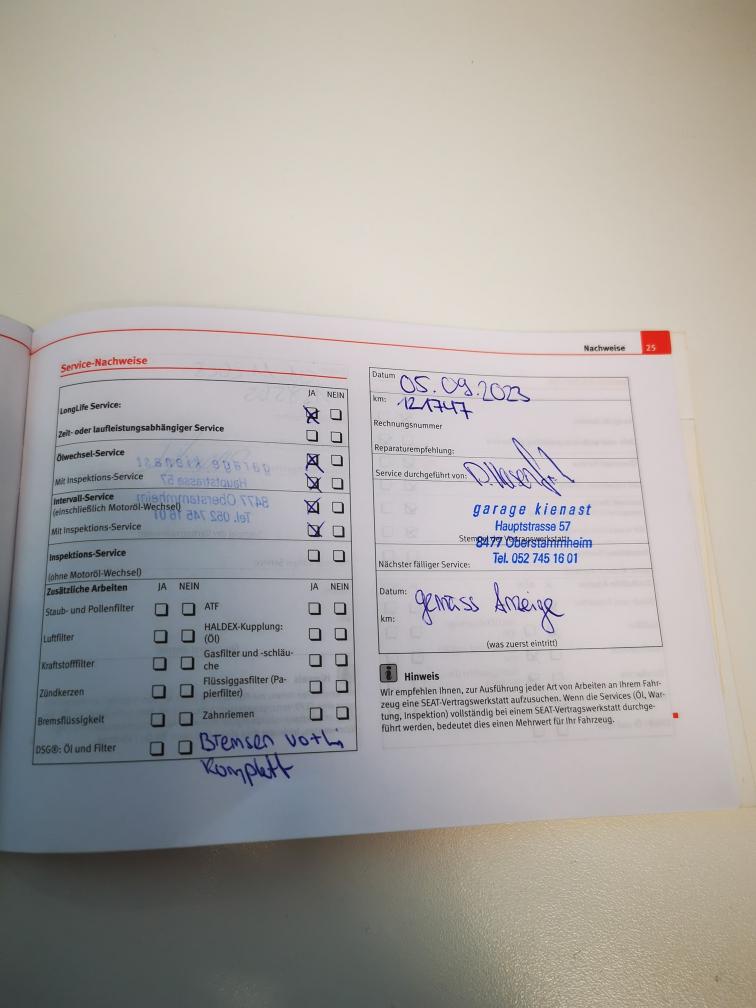 Nachweise 25
Service-Nachweise
JA NEIN
LongLife Service:
Zeit- oder laufleistungsabhängiger Service
Ölwechsel-Service
Mit Inspektions-Service
Intervall-Service
(einschließlich Motoröl-Wechsel)
Mit Inspektions-Service
Inspektions-Service
(ohne Motoröl-Wechsel)
Zusätzliche Arbeiten JA NEIN JA NEIN
Staub- und Pollenfilter ATF
Luftfilter HALDEX-Kupplung:
(Öl)
Kraftstofffilter Gasfilter und -schläu-
che
Zündkerzen Flüssiggasfilter (Pa-
pierfilter)
Bremsflüssigkeit Zahnriemen
DSG®: Öl und Filter Bremsen
Komplett
Datum 05.09.2023
km: 121747
Rechnungsnummer
Reparaturempfehlung:
Service durchgeführt von:
garage kienast
Hauptstrasse 57
Stempel der Vertragswerkstatt
8477 Oberstammheim
Tel. 052 745 16 01
Nächster fälliger Service:
Datum: gemäss Anzeige
km:
(was zuerst eintritt)
i Hinweis
Wir empfehlen Ihnen, zur Ausführung jeder Art von Arbeiten an Ihrem Fahr-
zeug eine SEAT-Vertragswerkstatt aufzusuchen. Wenn die Services (Öl, War-
tung, Inspektion) vollständig bei einem SEAT-Vertragswerkstatt durchge-
führt werden, bedeutet dies einen Mehrwert für Ihr Fahrzeug.